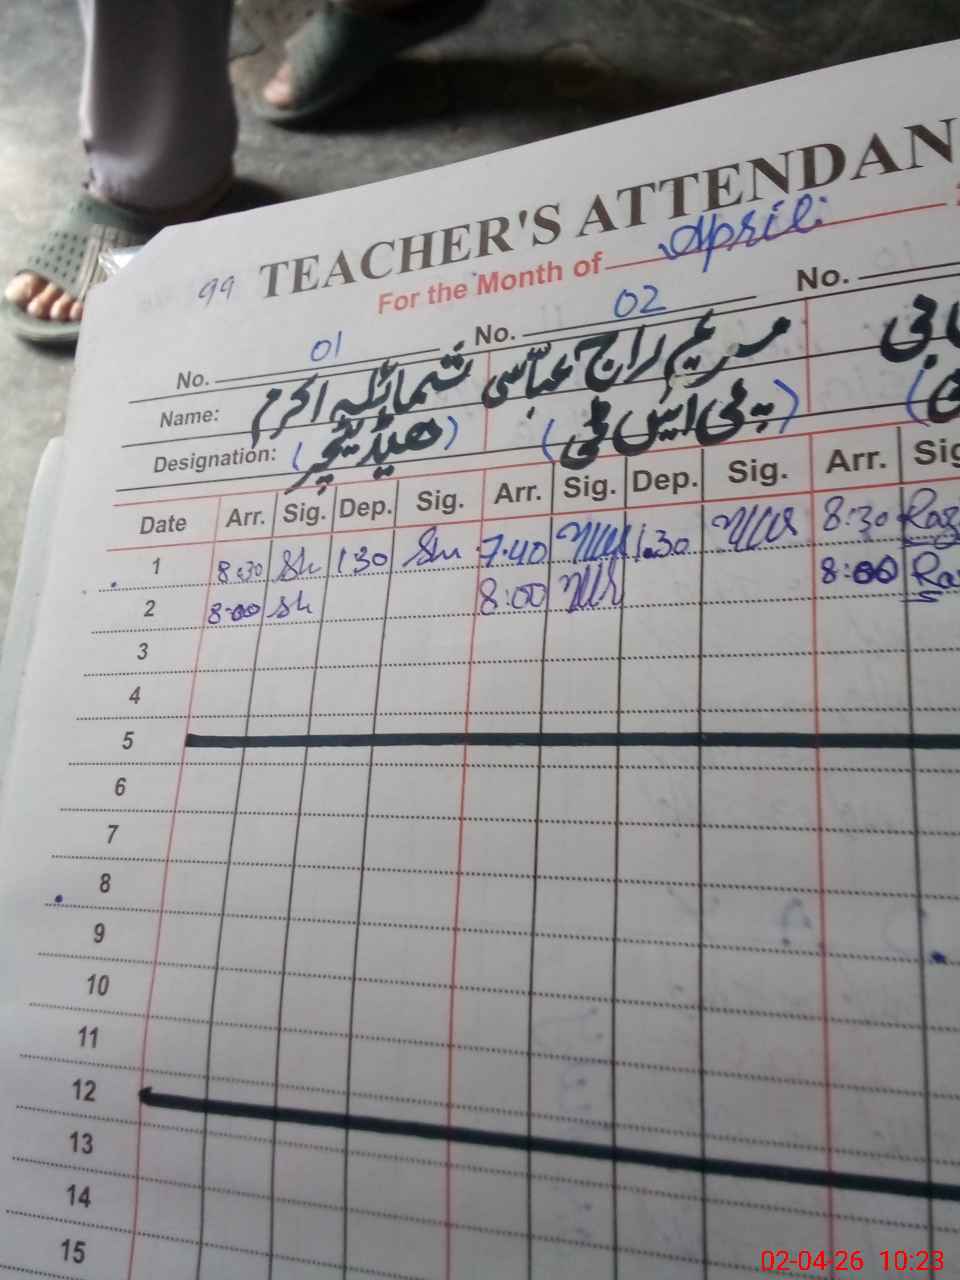 99 TEACHER'S ATTENDAN
For the Month of April
No. 01 No. 02 No.
Name: شمائلہ اکرم مریم راج عباسی
Designation: (ھیڈ ٹیچر) (پی ایس ٹی)
Date Arr. Sig. Dep. Sig. Arr. Sig. Dep. Sig. Arr. Sig
1 8:30 Sh 1:30 Shu 7:40 1:30 8:30
2 8:00 Sh 8:00 8:00
3
4
5
6
7
8
9
10
11
12
13
14
15
02-04-26 10:23